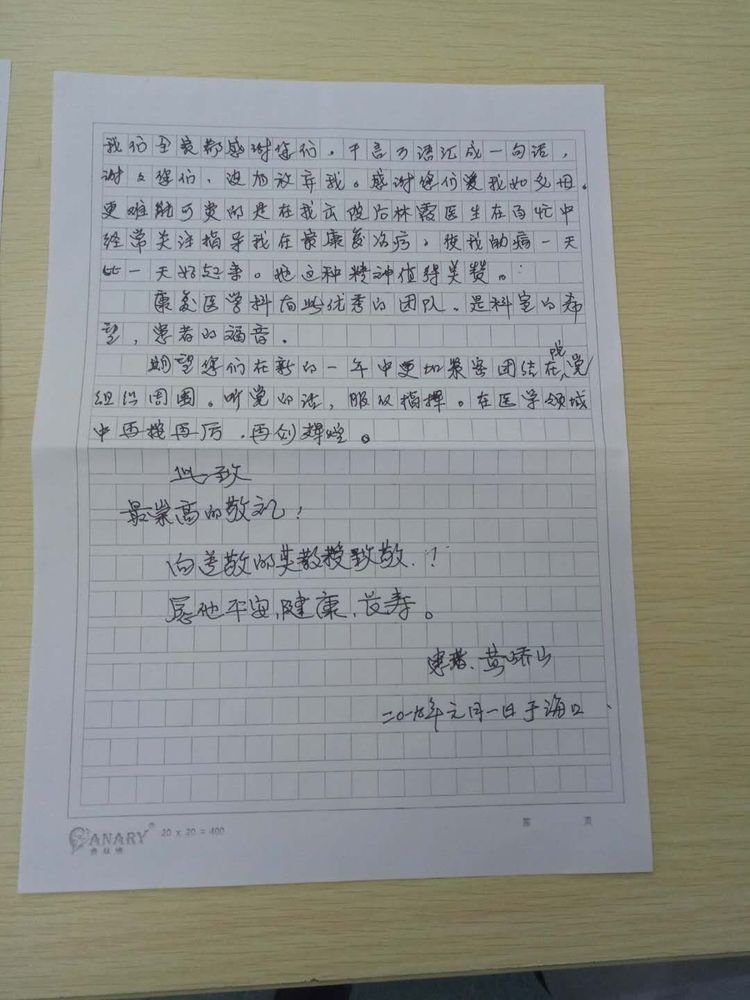 我们全家都感谢您们，千言万语汇成一句话，
谢谢您们、没有放弃我。感谢您们爱我如父母。
更难能可贵的是在我出院后林霞医生在百忙中
经常关注指导我在家康复治疗，使我的病一天
比一天好起来。他这种精神值得美赞。
康复医学科有此优秀的团队。是科室的希
望，患者的福音。
期望您们在新的一年中更加紧密团结在党
组织周围。听党的话，服从指挥。在医学领域
中再接再厉，再创辉煌。
此致
最崇高的敬礼！
向尊敬的吴教授致敬！
愿他平安，健康，长寿。
患者、黄桥山
二〇一八年元月一日于海口
ANARY® 20 x 20 = 400
第 页